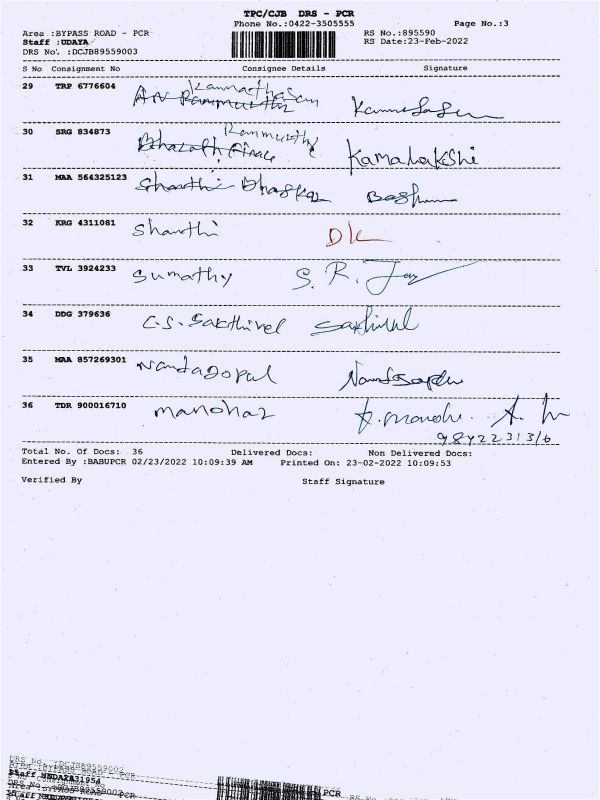 TPC/CJB DRS - PCR
Phone No.:0422-3505555 Page No.:3
Area :BYPASS ROAD - PCR RS No.:895590
Staff :UDAYA RS Date:23-Feb-2022
DRS No. :DCJB89559003
S No Consignment No Consignee Details Signature
29 TRP 6776604
30 SRG 834873 Rammurthy Kamahakshi
31 MAA 564325123 Shanthi Bhaskar
32 KRG 4311081 Shanthi DK
33 TVL 3924233 Sumathy S. R. Jay
34 DDG 379636 C.S. Sakthivel Sakthivel
35 MAA 857269301 Nandagopal Nandagopal
36 TDR 900016710 manohar
9842231316
Total No. Of Docs: 36 Delivered Docs: Non Delivered Docs:
Entered By :BABUPCR 02/23/2022 10:09:39 AM Printed On: 23-02-2022 10:09:53
Verified By Staff Signature
DRS No. :DCJB89559002
PCR